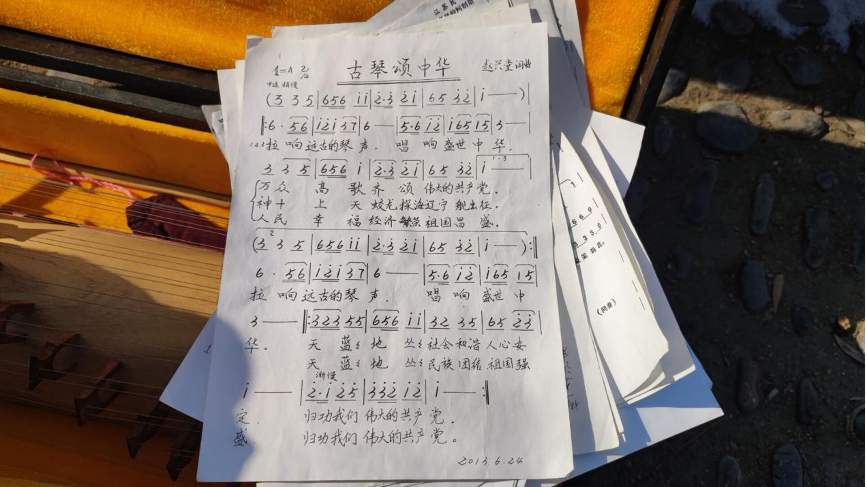 古琴颂中华
1=A 2/4
赵兴堂词曲
中速 稍慢
(3 3 5 | 656 i i | 2·3 2 i | 65 32 | i — — )|
‖: 6· 56 | i 2 i 37 | 6 — — | 5·6 i 2 | i 65 15 | 3 — — |
1.2.3 拉 响 远古的琴 声. 唱 响 盛世 中 华.
3 3 5 | 656 i | 2·3 2 i | 65 32 | i — — |
1·3
万 众 高 歌 齐 颂 伟大的共产党.
神十 上 天 蛟龙探海辽宁舰出征.
人民 幸 福 经济繁荣祖国昌 盛.
2
(3 3 5 | 656 i i | 2·3 2 i | 65 32 | i — — ):‖
6· 56 | i 2 i 37 | 6 — — | 5·6 i 2 | i 65 15 |
拉 响 远古的琴 声. 唱 响 盛世 中
3 — — ‖: 323 55 | 656 i i | 32 35 | 65 23 |
华. 天 蓝 地 社会和谐人心安
天 蓝 地 民族团结 祖国强
渐慢
i — — | 2·i 25 | 332 i 2 | i — — :‖
定. 归功我们 伟大的共产党.
盛. 归功我们 伟大的共产党。
2013.6.24
(间奏)